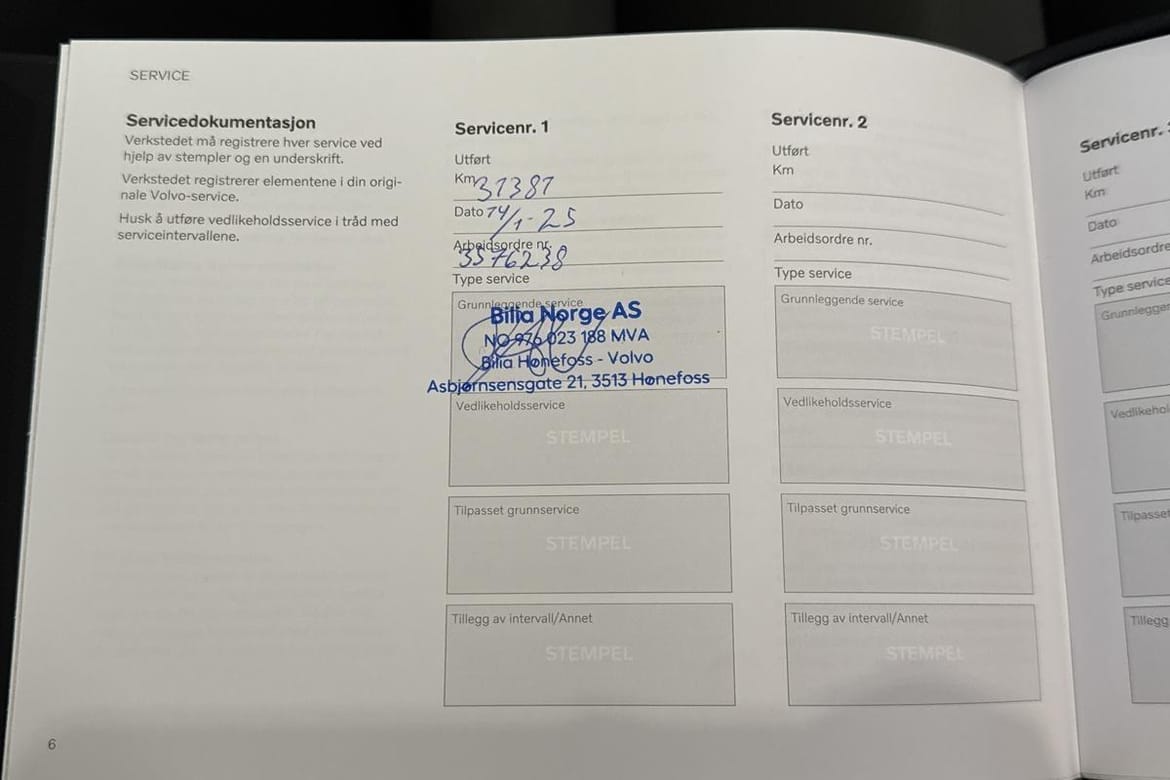 SERVICE
Servicedokumentasjon
Verkstedet må registrere hver service ved
hjelp av stempler og en underskrift.
Verkstedet registrerer elementene i din origi-
nale Volvo-service.
Husk å utføre vedlikeholdsservice i tråd med
serviceintervallene.
Servicenr. 1
Utført
Km 31381
Dato 14/1-25
Arbeidsordre nr.
3576238
Type service
Grunnleggende service
Bilia Norge AS
NO 976 023 188 MVA
Bilia Hønefoss - Volvo
Asbjørnsensgate 21, 3513 Hønefoss
Vedlikeholdsservice
STEMPEL
Tilpasset grunnservice
STEMPEL
Tillegg av intervall/Annet
STEMPEL
Servicenr. 2
Utført
Km
Dato
Arbeidsordre nr.
Type service
Grunnleggende service
STEMPEL
Vedlikeholdsservice
STEMPEL
Tilpasset grunnservice
STEMPEL
Tillegg av intervall/Annet
STEMPEL
Servicenr.
Utført
Km
Dato
Arbeidsordre
Type service
Grunnlegge
Vedlikehol
Tilpasset
Tillegg
6